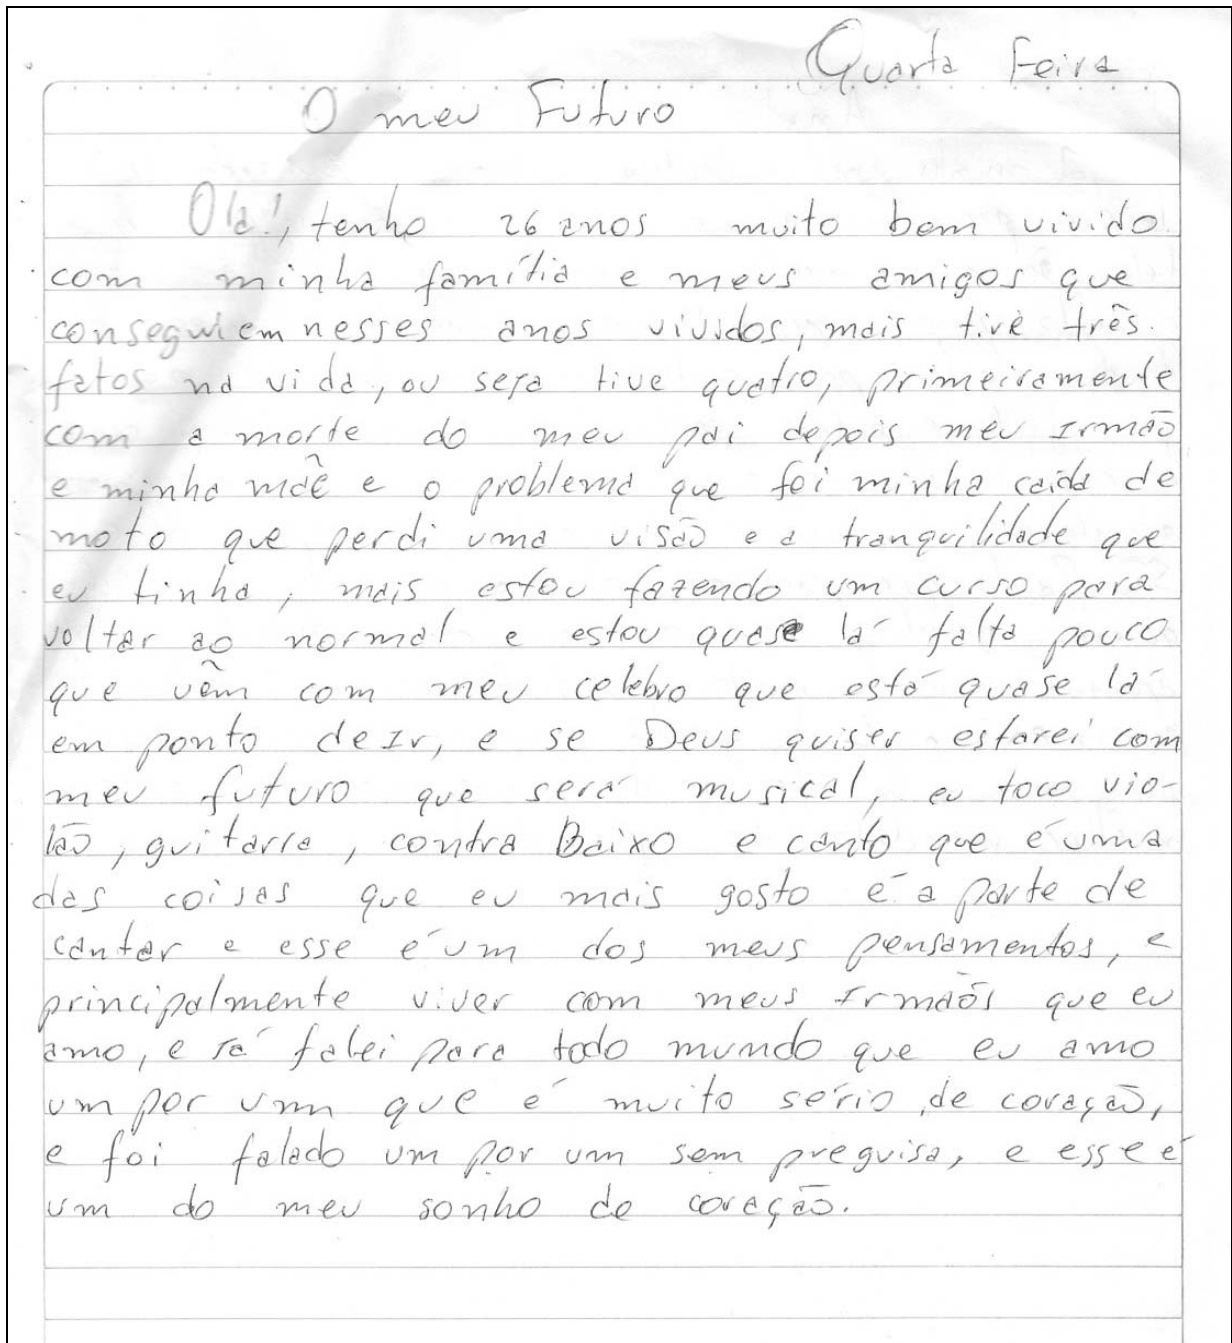 Quarta Feira
O meu Futuro
Olá!, tenho 26 anos muito bem vivido
com minha família e meus amigos que
conseguiem nesses anos vividos, mais tive três
fatos na vida, ou seja tive quatro, primeiramente
com a morte do meu pai depois meu Irmão
e minha mãe e o problema que foi minha caida de
moto que perdi uma visão e a tranquilidade que
eu tinha, mais estou fazendo um curso para
voltar ao normal e estou quase lá falta pouco
que vêm com meu celebro que está quase lá
em ponto de Ir, e se Deus quiser estarei com
meu futuro que será musical, eu toco vio-
lão, guitarra, contra Baixo e canto que é uma
das coisas que eu mais gosto é a parte de
cantar e esse é um dos meus pensamentos, e
principalmente viver com meus Irmãos que eu
amo, e já falei para todo mundo que eu amo
um por um que é muito sério, de coração,
e foi falado um por um sem preguisa, e esse é
um do meu sonho de coração.